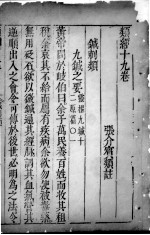 類經十九卷
張介賓類註
鍼刺類
九鍼之要靈樞九鍼十
二原篇〇一
黃帝問於岐伯曰余子萬民養百姓而收其租
稅余哀其不給而屬有疾病余欲勿使被毒藥
無用砭石欲以微鍼通其經脈調其血氣營其
逆順出入之會令可傳於後世必明為之法令